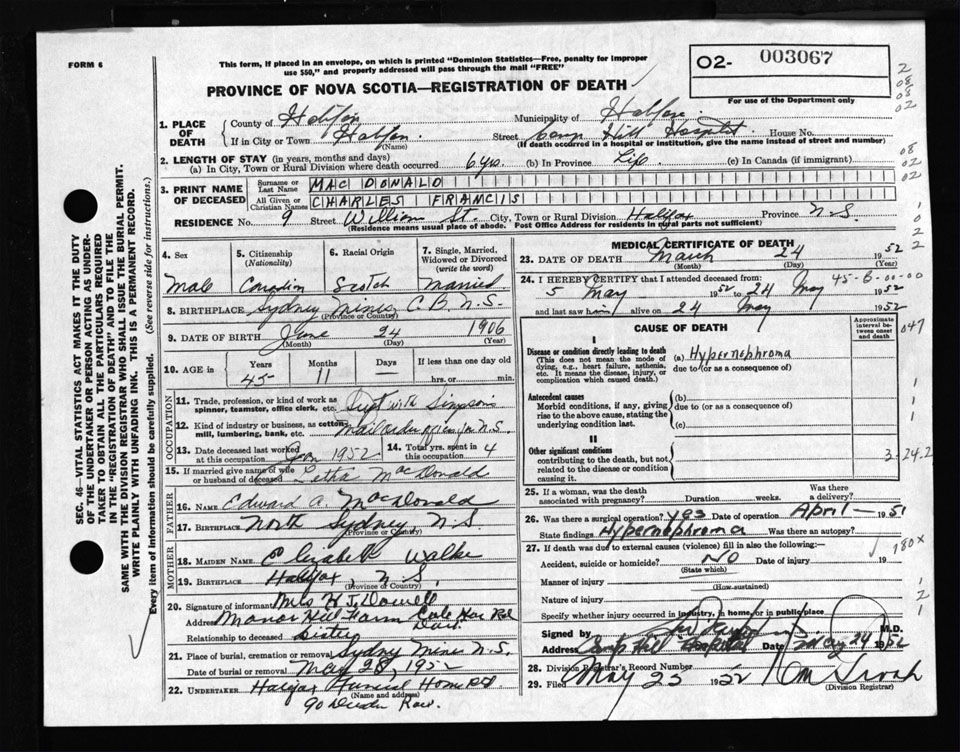 FORM 6
This form, if placed in an envelope, on which is printed "Dominion Statistics—Free, penalty for improper
use $50," and properly addressed will pass through the mail "FREE"
02- 003067
PROVINCE OF NOVA SCOTIA—REGISTRATION OF DEATH
For use of the Department only
1. PLACE OF DEATH
County of Halifax Municipality of Halifax
If in City or Town Halifax (Name) Street Camp Hill Hospital House No.
(If death occurred in a hospital or institution, give the name instead of street and number)
2. LENGTH OF STAY (in years, months and days)
(a) In City, Town or Rural Division where death occurred 6 yrs. (b) In Province Life (c) In Canada (if immigrant)
3. PRINT NAME OF DECEASED
Surname or Last Name MAC DONALD
All Given or Christian Names CHARLES FRANCIS
RESIDENCE No. 9 Street William St. City, Town or Rural Division Halifax Province N.S.
(Residence means usual place of abode. Post Office Address for residents in rural parts not sufficient)
4. Sex
Male
5. Citizenship (Nationality)
Canadian
6. Racial Origin
Scotch
7. Single, Married, Widowed or Divorced (write the word)
Married
8. BIRTHPLACE Sydney Mines C.B. N.S.
(Province or Country)
9. DATE OF BIRTH June 24 1906
(Month) (Day) (Year)
10. AGE in Years Months Days If less than one day
45 11 — hrs. or min.
OCCUPATION
11. Trade, profession, or kind of work as
spinner, teamster, office clerk, etc. Supt with Simpsons
12. Kind of industry or business, as cotton
mill, lumbering, bank, etc. Mail order office for N.S.
13. Date deceased last worked
at this occupation Jan 1952
14. Total yrs. spent in
this occupation 4
15. If married give name of wife
or husband of deceased MacDonald
FATHER
16. NAME Edward A. MacDonald
17. BIRTHPLACE North Sydney, N.S.
(Province or Country)
MOTHER
18. MAIDEN NAME Elizabeth
19. BIRTHPLACE Halifax, N.S.
(Province or Country)
20. Signature of informant Mrs H. J.
Address Manor Hill Farm Cole Har Rd
Dart.
Relationship to deceased Sister
21. Place of burial, cremation or removal Sydney Mines N.S.
Date of burial or removal May 28, 1952
22. UNDERTAKER Halifax Funeral Home Ltd
(Name and address)
90
MEDICAL CERTIFICATE OF DEATH
23. DATE OF DEATH March 24 1952
(Month) (Day) (Year)
24. I HEREBY CERTIFY that I attended deceased from:
45-6-00-00
5 May 1952 to 24 May 1952
and last saw him alive on 24 May 1952
CAUSE OF DEATH
Approximate interval between onset and death
I
Disease or condition directly leading to death
(This does not mean the mode of dying, e.g., heart failure, asthenia, etc. It means the disease, injury, or complication which caused death.)
(a) Hypernephroma
due to (or as a consequence of)
Antecedent causes
Morbid conditions, if any, giving rise to the above cause, stating the underlying condition last.
(b)
due to (or as a consequence of)
(c)
II
Other significant conditions
contributing to the death, but not related to the disease or condition causing it.
25. If a woman, was the death associated with pregnancy? Duration weeks. Was there a delivery?
26. Was there a surgical operation? Yes Date of operation April — 1951
State findings Hypernephroma Was there an autopsy?
27. If death was due to external causes (violence) fill in also the following:—
Accident, suicide or homicide? No Date of injury 19
(State which)
Manner of injury
(How sustained)
Nature of injury
Specify whether injury occurred in industry, in home, or in public place
Signed by M.D.
Address Camp Hill Hospital Date May 24 1952
28. Division Registrar's Record Number
29. Filed May 25 1952
(Division Registrar)
SEC. 46—VITAL STATISTICS ACT MAKES IT THE DUTY
OF THE UNDERTAKER OR PERSON ACTING AS UNDER-
TAKER TO OBTAIN ALL THE PARTICULARS REQUIRED
IN THE "REGISTRATION OF DEATH" AND TO FILE THE
SAME WITH THE DIVISION REGISTRAR WHO SHALL ISSUE THE BURIAL PERMIT.
WRITE PLAINLY WITH UNFADING INK. THIS IS A PERMANENT RECORD.
Every item of information should be carefully supplied. (See reverse side for instructions.)
2
08
08
02
08
02
02
047
3.24.2
180x